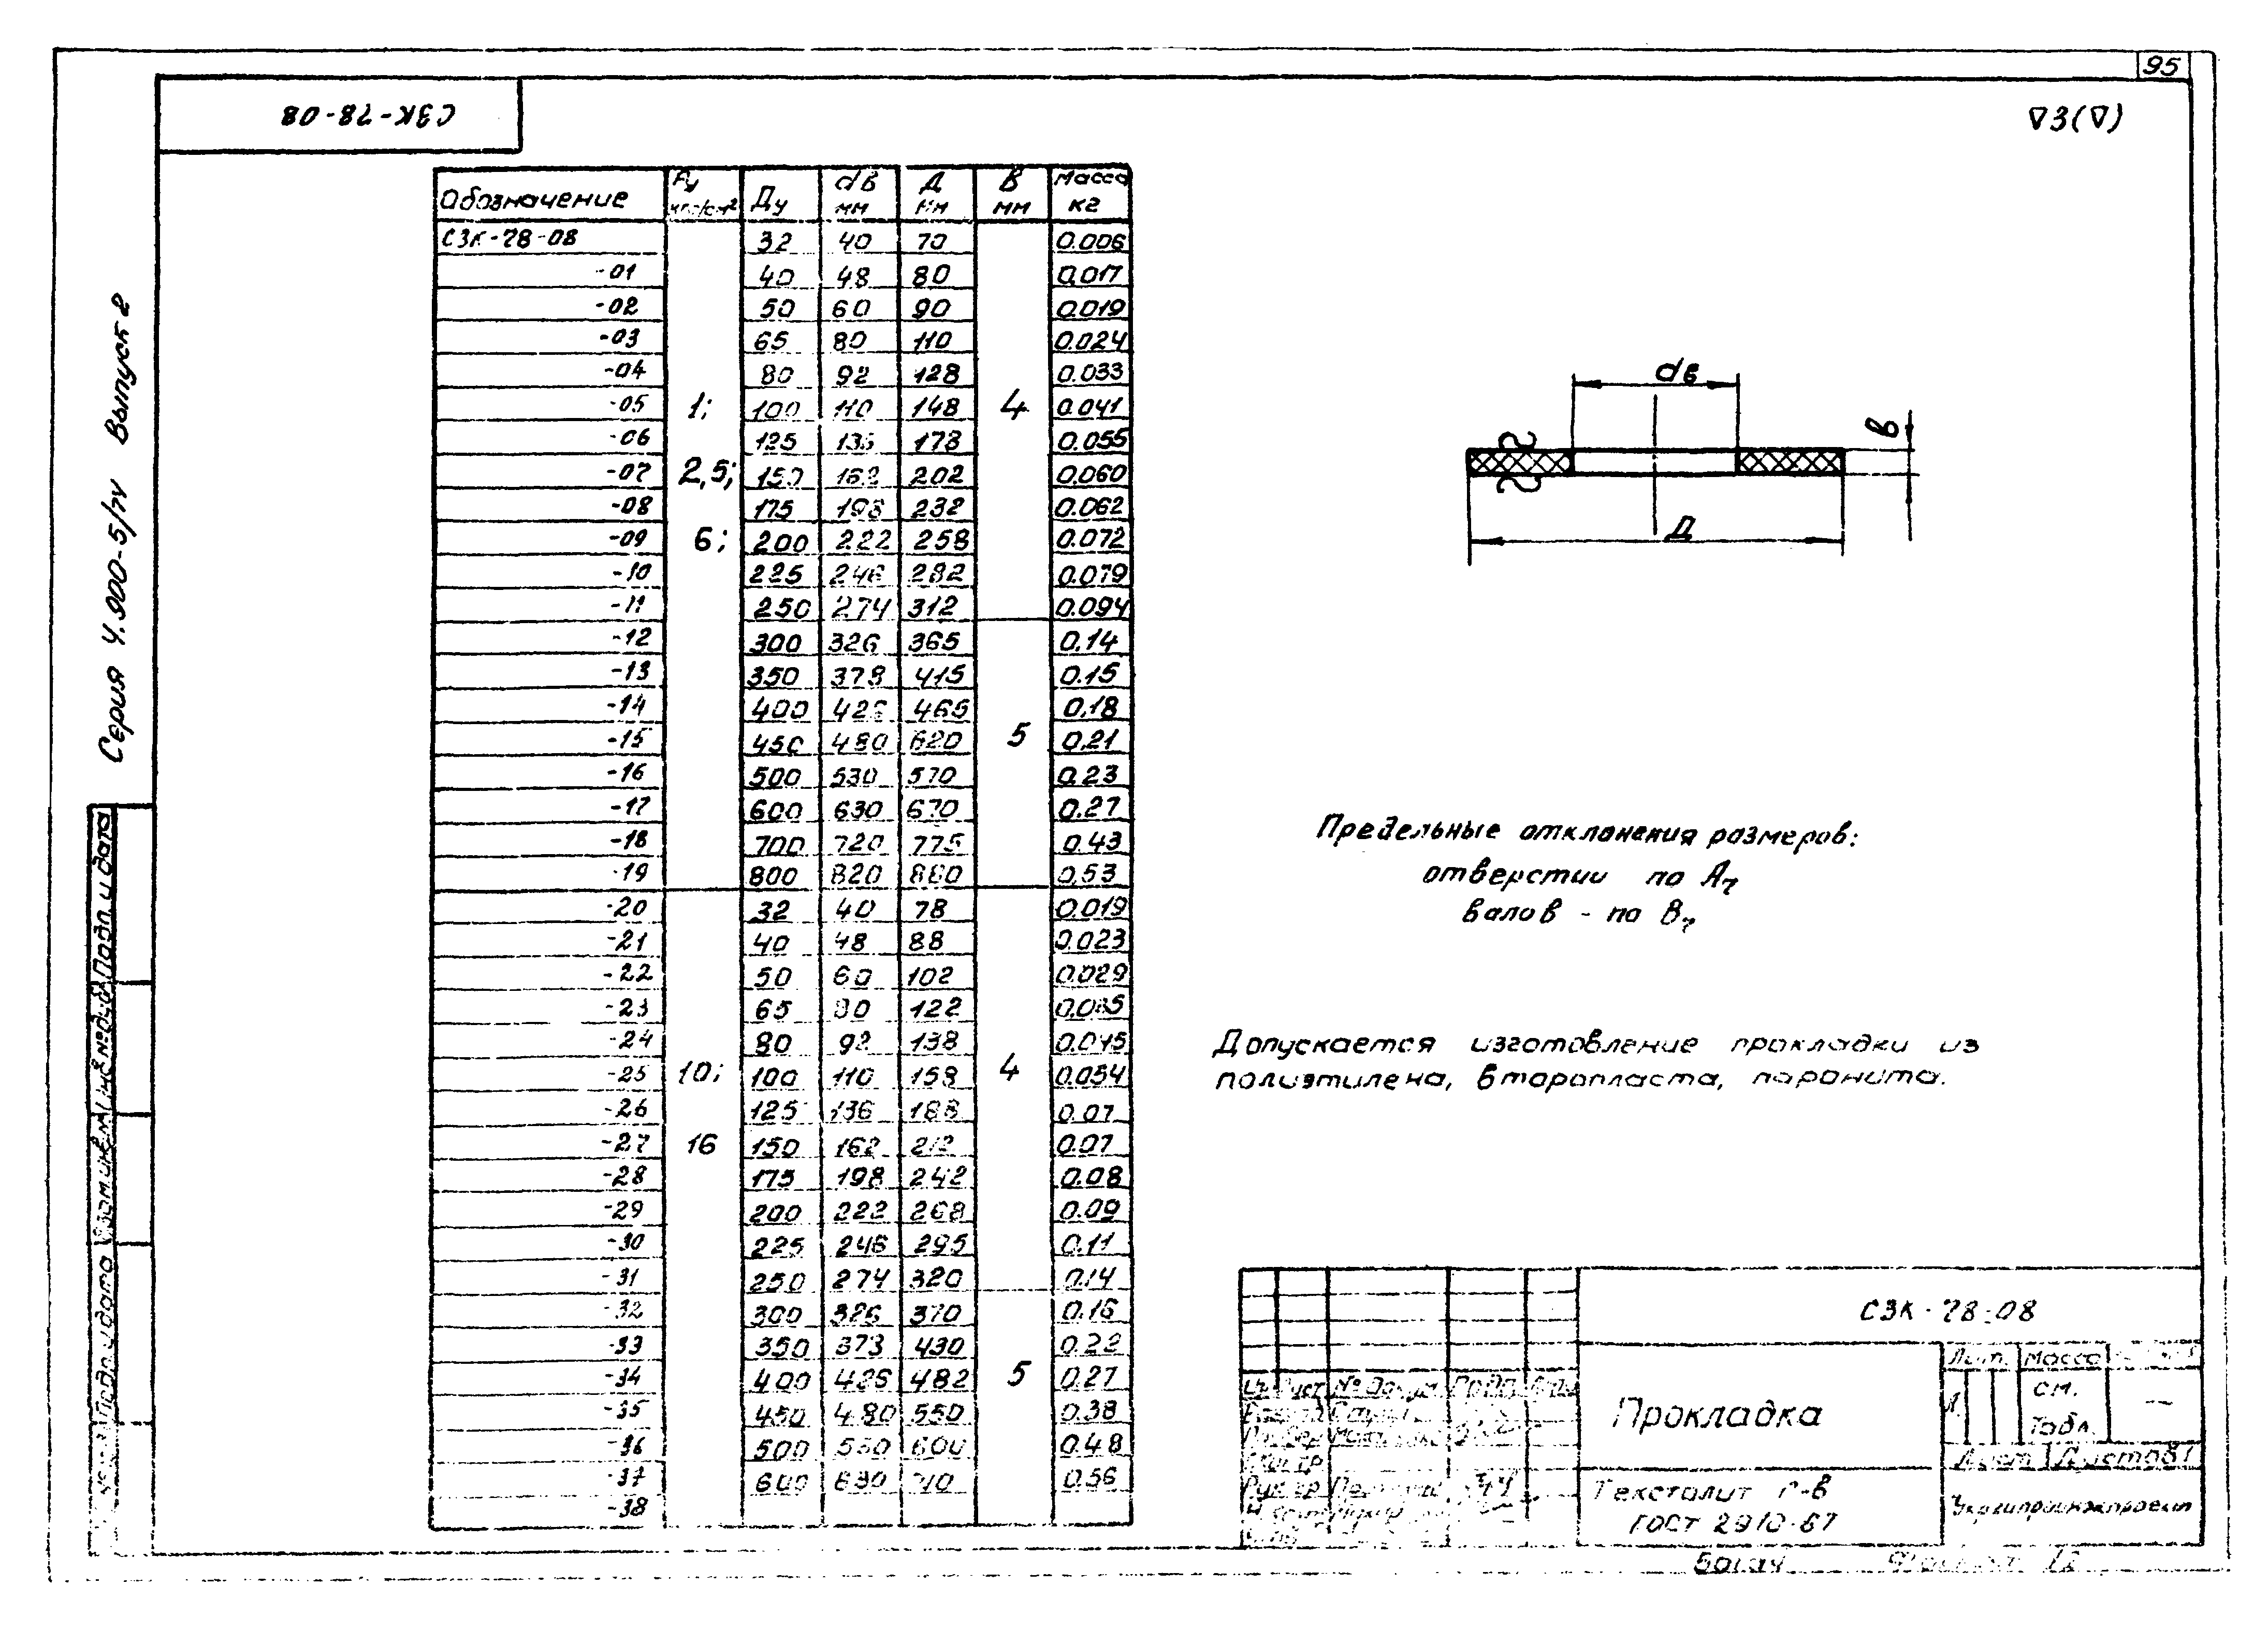 95
СЗК-78-08
∇3(∇)
Обозначение Ру кгс/см² Ду dв мм Д мм В мм Масса кг
СЗК-78-08 32 40 70 0.006
-01 40 48 80 0.017
-02 50 60 90 0.019
-03 65 80 110 0.024
-04 80 92 128 0.033
-05 1; 100 110 148 4 0.041
-06 125 136 178 0.055
-07 2,5; 150 162 202 0.060
-08 175 198 232 0.062
-09 6; 200 222 258 0.072
-10 225 246 282 0.079
-11 250 274 312 0.094
-12 300 326 365 0.14
-13 350 378 415 0.15
-14 400 426 465 0.18
-15 450 480 620 5 0.21
-16 500 530 570 0.23
-17 600 630 670 0.27
-18 700 720 775 0.43
-19 800 820 880 0.53
-20 32 40 78 0.019
-21 40 48 88 0.023
-22 50 60 102 0.029
-23 65 80 122 0.035
-24 80 92 138 0.045
-25 10; 100 110 158 4 0.054
-26 125 136 188 0.07
-27 16 150 162 212 0.07
-28 175 198 242 0.08
-29 200 222 268 0.09
-30 225 246 295 0.11
-31 250 274 320 0.14
-32 300 326 370 0.16
-33 350 373 430 0.22
-34 400 426 482 5 0.27
-35 450 480 550 0.38
-36 500 530 600 0.48
-37 600 630 710 0.56
-38
dв
в
Д
Предельные отклонения размеров:
отверстий по А₇
валов - по В₇
Допускается изготовление прокладки из
полиэтилена, фторопласта, паронита.
СЗК-78-08
Прокладка
Лит. Масса
см.
Табл.
—
Лист Листов 1
Текстолит
ГОСТ 2910-67
Укргипроинжпроект
№ докум.
Серия 4.900-5/74 Выпуск 2
Подп. и дата
Подп. и дата